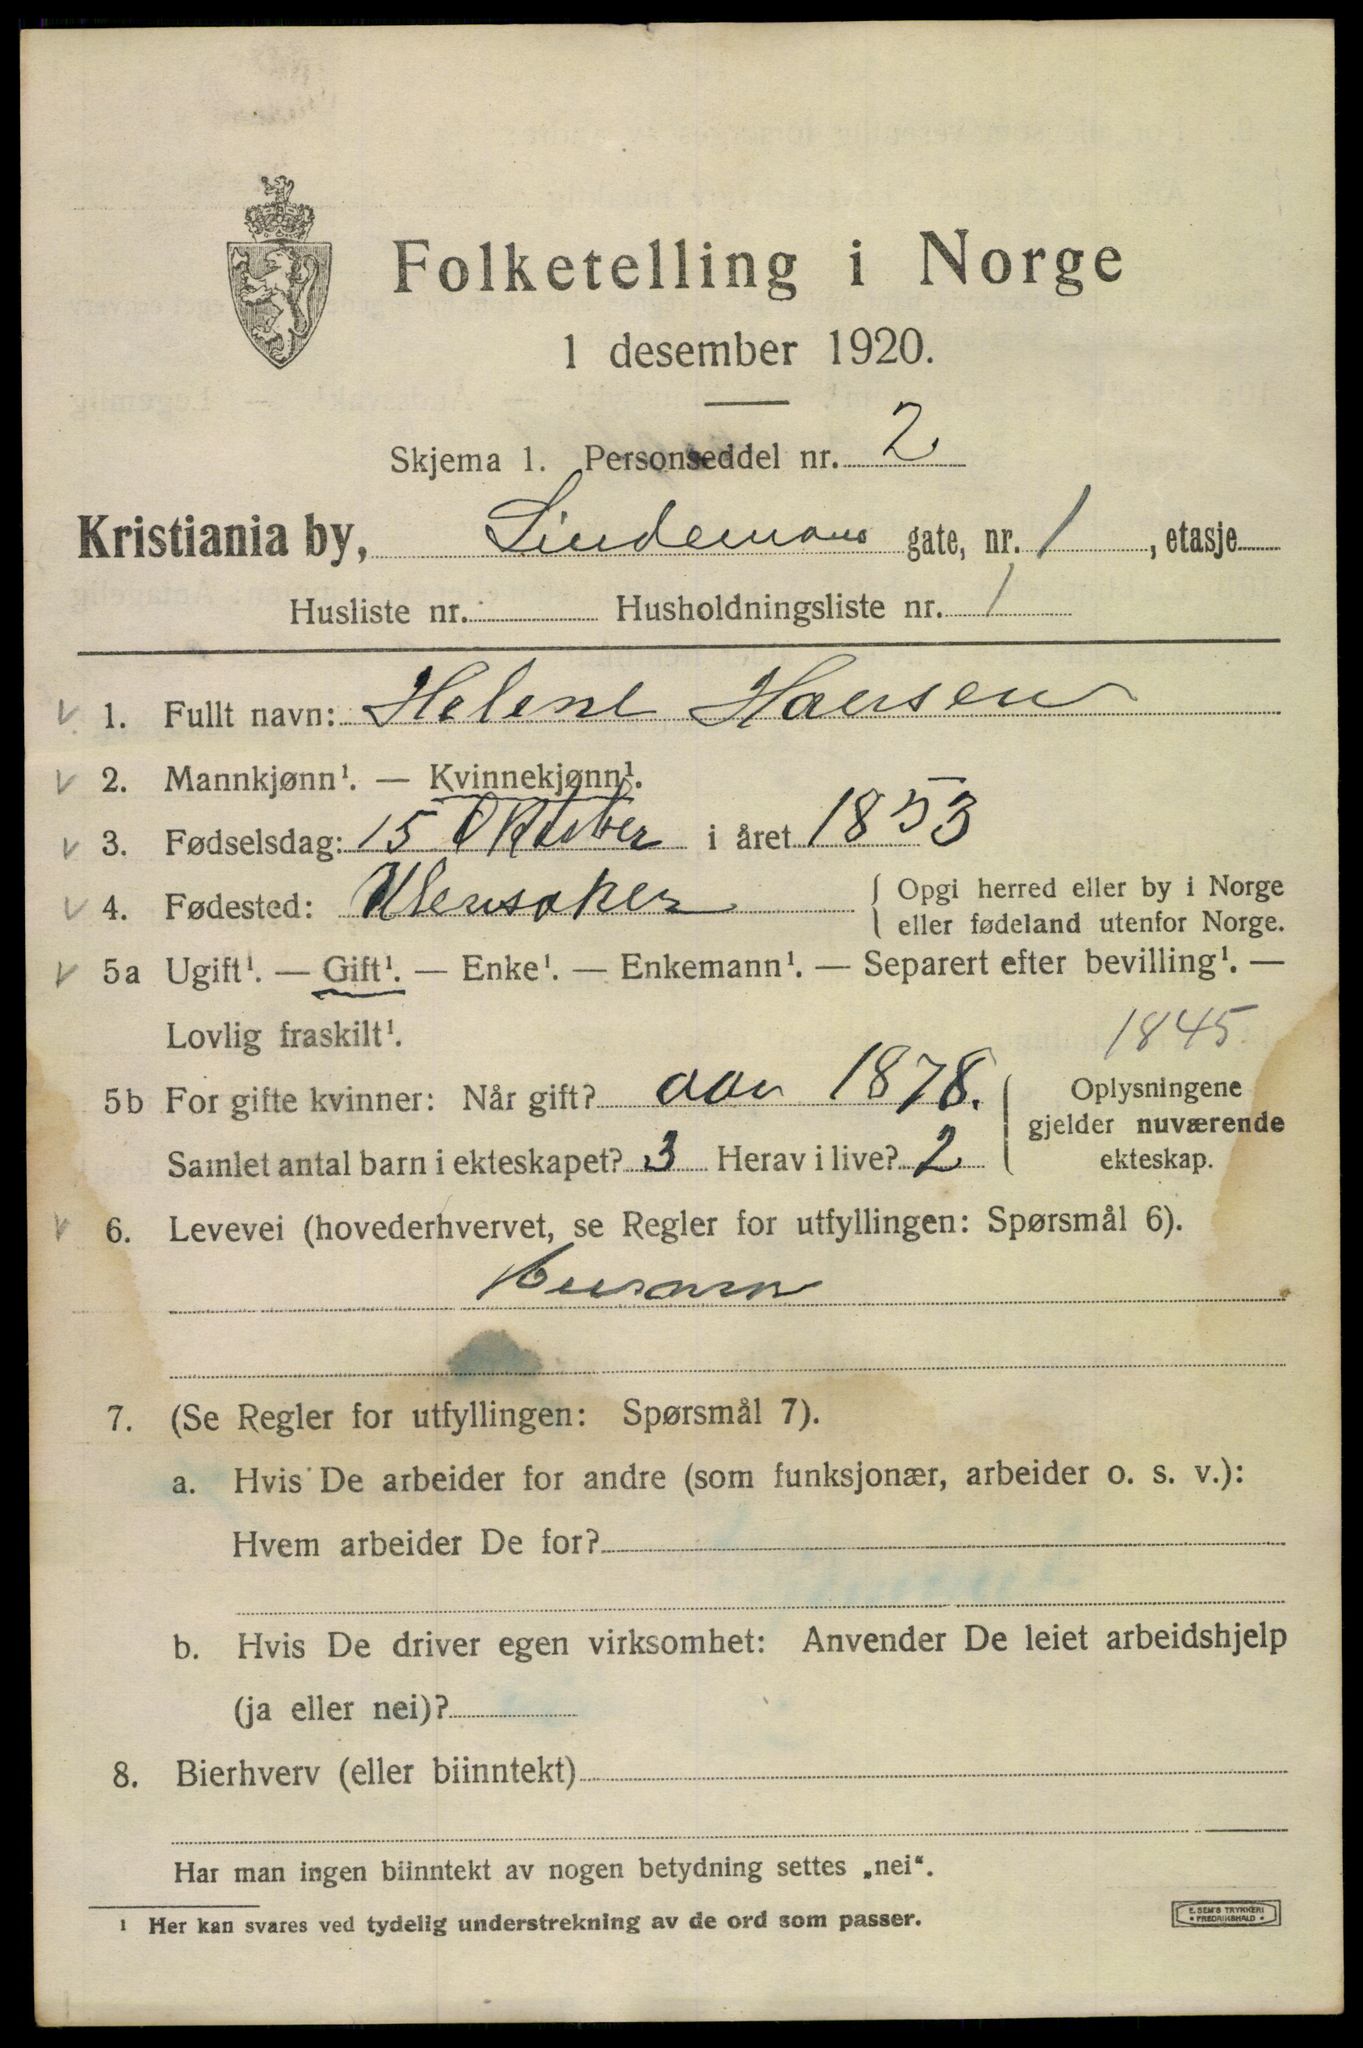 Folketelling i Norge
1 desember 1920.
Skjema 1. Personseddel nr. 2
Kristiania by, Lindemans gate, nr. 1, etasje
Husliste nr. Husholdningsliste nr. 1
1. Fullt navn: Helene Hansen
2. Mannkjønn¹. — Kvinnekjønn¹.
3. Fødselsdag: 15 Oktober i året 1853
4. Fødested: Ulensaker { Opgi herred eller by i Norge
eller fødeland utenfor Norge.
5a Ugift¹. — Gift¹. — Enke¹. — Enkemann¹. — Separert efter bevilling¹. —
Lovlig fraskilt¹.
1845
5b For gifte kvinner: Når gift? aar 1878.
Samlet antal barn i ekteskapet? 3 Herav i live? 2
Oplysningene
gjelder nuværende
ekteskap.
6. Levevei (hovederhvervet, se Regler for utfyllingen: Spørsmål 6).
Husmor
7. (Se Regler for utfyllingen: Spørsmål 7).
a. Hvis De arbeider for andre (som funksjonær, arbeider o. s. v.):
Hvem arbeider De for?
b. Hvis De driver egen virksomhet: Anvender De leiet arbeidshjelp
(ja eller nei)?
8. Bierhverv (eller biinntekt)
Har man ingen biinntekt av nogen betydning settes „nei“.
¹ Her kan svares ved tydelig understrekning av de ord som passer.
E. SEM'S TRYKKERI
• FREDRIKSHALD •